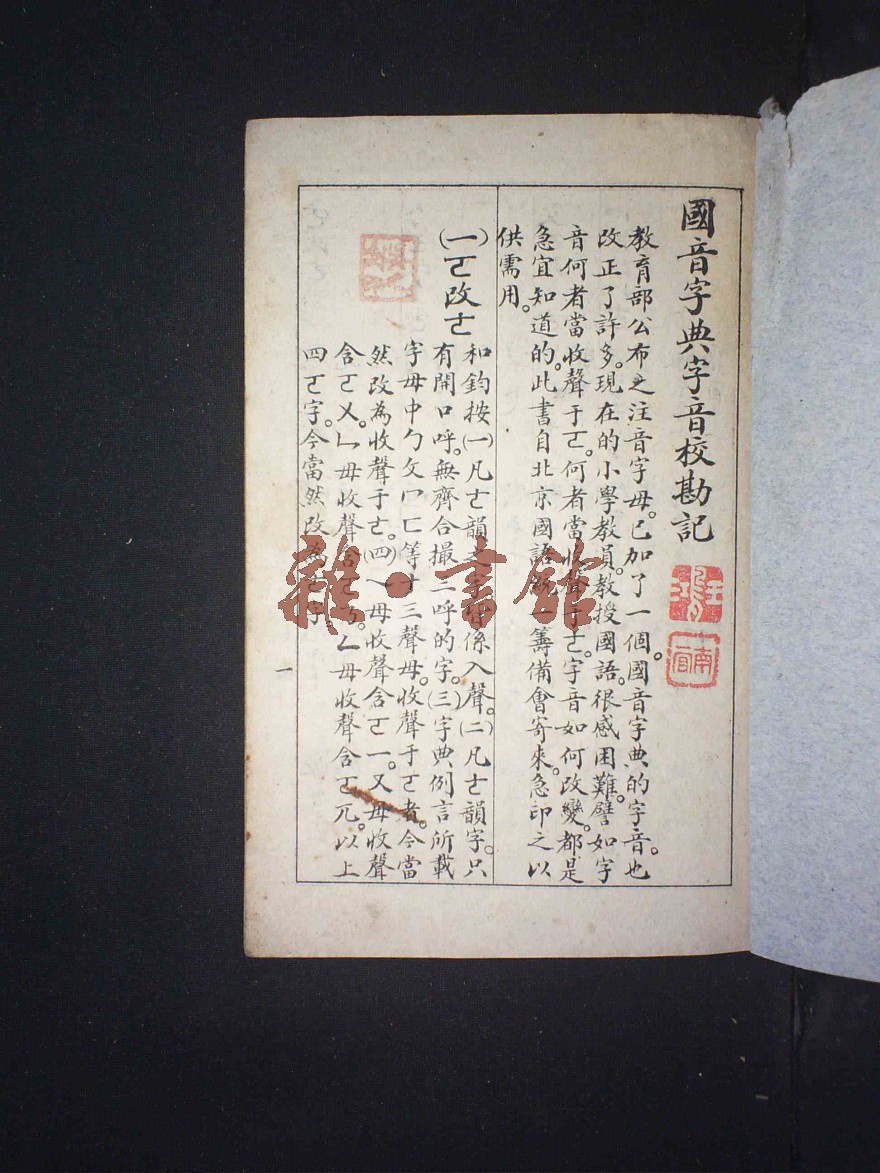 國音字典字音校勘記
教育部公布之注音字母。已加了一個。國音字典的字音。也
改正了許多。現在的小學教員。教授國語。很感困難。譬如字
音何者當收聲于ㄛ。何者當收聲于ㄜ。字音如何改變。都是
急宜知道的。此書自北京國語統一籌備會寄來。急印之以
供需用。
(一)ㄛ改ㄜ
和鈞按(一)凡ㄜ韻之字皆係入聲。(二)凡ㄜ韻字。只
有開口呼。無齊合撮三呼的字。(三)字典例言所載
字母中ㄅㄆㄇㄈ等十三聲母。收聲于ㄛ者。今當
然改為收聲于ㄜ。(四)ㄟ母收聲含ㄛㄧ。ㄡ母收聲
含ㄛㄨ。ㄣ母收聲含ㄛㄋ。ㄥ母收聲含ㄛㄫ。以上
四ㄛ字。今當然改為ㄜ字。
一
雜·書館